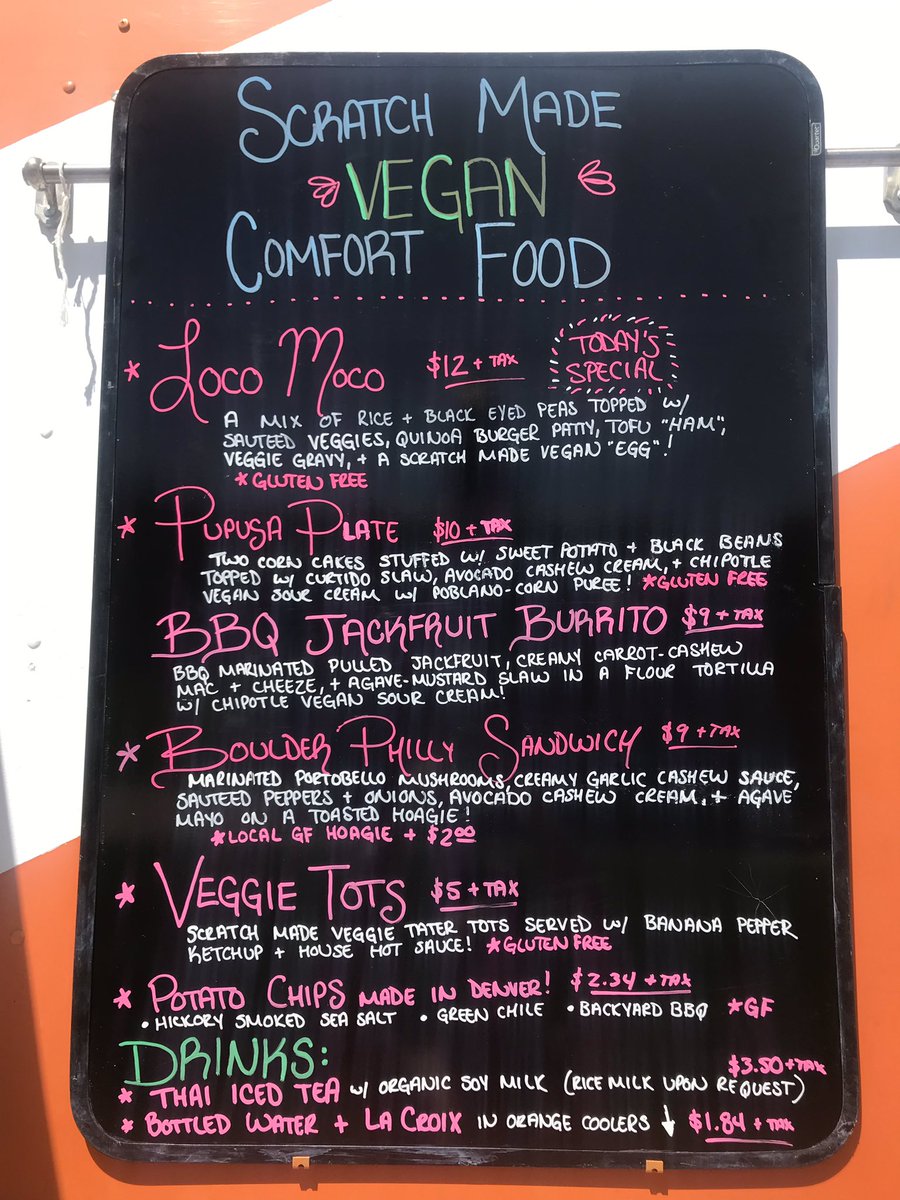 SCRATCH MADE
VEGAN
COMFORT FOOD
Quartet
* LOCO MOCO $12 + TAX TODAY'S SPECIAL
A MIX OF RICE + BLACK EYED PEAS TOPPED W/
SAUTEED VEGGIES, QUINOA BURGER PATTY, TOFU "HAM",
VEGGIE GRAVY, + A SCRATCH MADE VEGAN "EGG"!
*GLUTEN FREE
* PUPUSA PLATE $10 + TAX
TWO CORN CAKES STUFFED W/ SWEET POTATO + BLACK BEANS
TOPPED W/ CURTIDO SLAW, AVOCADO CASHEW CREAM, + CHIPOTLE
VEGAN SOUR CREAM W/ POBLANO-CORN PUREE! *GLUTEN FREE
BBQ JACKFRUIT BURRITO $9 + TAX
BBQ MARINATED PULLED JACKFRUIT, CREAMY CARROT-CASHEW
MAC + CHEEZE, + AGAVE-MUSTARD SLAW IN A FLOUR TORTILLA
W/ CHIPOTLE VEGAN SOUR CREAM!
* BOULDER PHILLY SANDWICH $9 + TAX
MARINATED PORTOBELLO MUSHROOMS, CREAMY GARLIC CASHEW SAUCE,
SAUTEED PEPPERS + ONIONS, AVOCADO CASHEW CREAM, + AGAVE
MAYO ON A TOASTED HOAGIE!
*LOCAL GF HOAGIE + $2.00
* VEGGIE TOTS $5 + TAX
SCRATCH MADE VEGGIE TATER TOTS SERVED W/ BANANA PEPPER
KETCHUP + HOUSE HOT SAUCE! *GLUTEN FREE
* POTATO CHIPS MADE IN DENVER! $2.34 + TAX
• HICKORY SMOKED SEA SALT • GREEN CHILE • BACKYARD BBQ *GF
DRINKS:
* THAI ICED TEA W/ ORGANIC SOY MILK (RICE MILK UPON REQUEST) $3.50 + TAX
* BOTTLED WATER + LA CROIX IN ORANGE COOLERS ↓ $1.84 + TAX